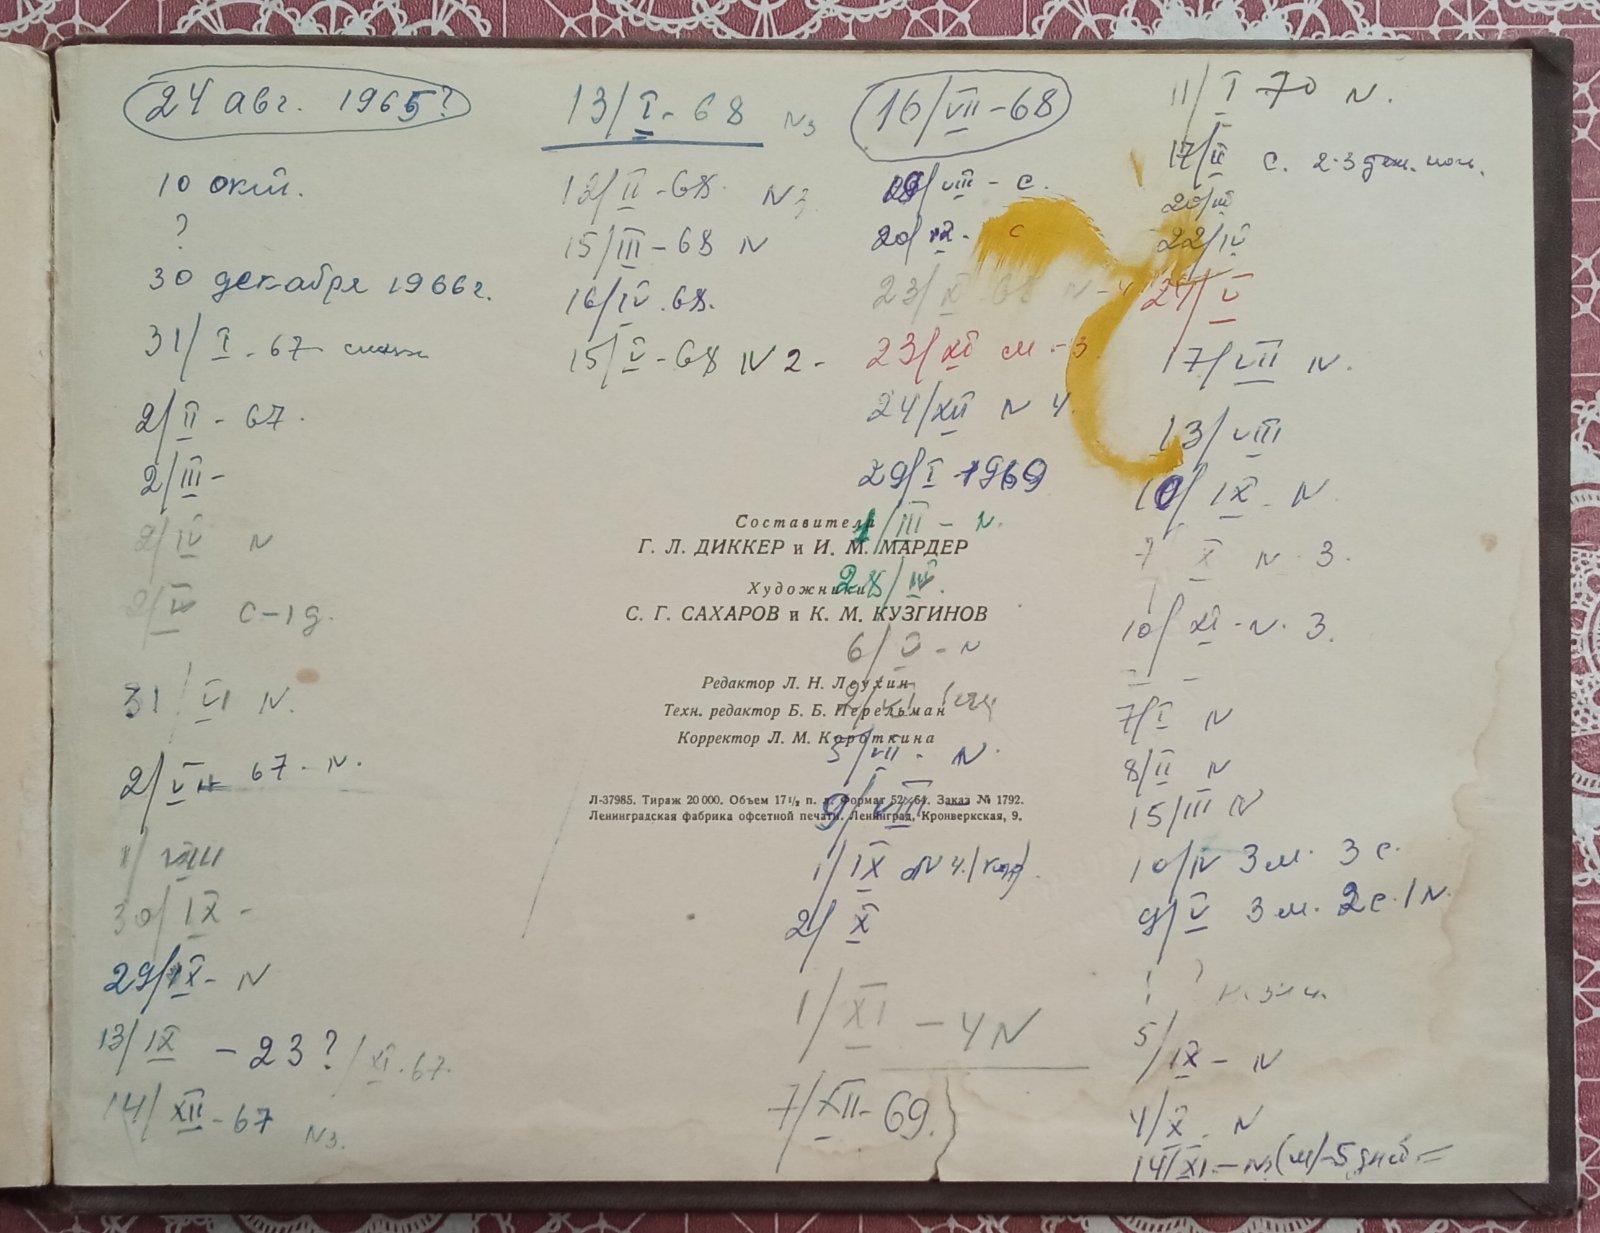 24 авг. 1965?
10 окт.
?
30 декабря 1966г.
31/I - 67
2/II - 67.
2/III -
2/IV N
2/V С-1д.
31/VI N.
2/VII 67 - N.
1/VIII
30/IX -
29/IX - N
13/IX - 23?/XI. 67.
14/XII - 67 N3.
13/I - 68 N3
12/II - 68. N3.
15/III - 68 N
16/IV. 68.
15/V - 68 N 2 -
Составители
Г. Л. ДИККЕР и И. М. МАРДЕР
Художники
С. Г. САХАРОВ и К. М. КУЗГИНОВ
Редактор Л. Н. Леухин
Техн. редактор Б. Б. Перельман
Корректор Л. М. Короткина
Л-37985. Тираж 20 000. Объем 17 1/2 п. л. Формат 52×64. Заказ № 1792.
Ленинградская фабрика офсетной печати. Ленинград, Кронверкская, 9.
16/VII - 68
VIII - с.
20/IX - с
23/X - 68 N - 4
23/XI м - 3
24/XII N 4
29/I 1969
1/III - N.
28/III.
6/V - N
2/VI
5/VII - N.
9/VIII
1/IX N 4.
2/X
1/XI - 4 N
7/XII - 69.
11/I 70 N.
17/II с. 2-3
20/III
22/IV
27/V
17/VII N.
13/VIII
10/IX - N
7 X N 3.
10/XI - N. 3.
7/I N
8/II N
15/III N
10/IV 3 м. 3 с.
9/V 3 м. 2 с. 1 N.
?
5/IX - N
4/X - N
14/XI - N3 (м) - 5 дней =